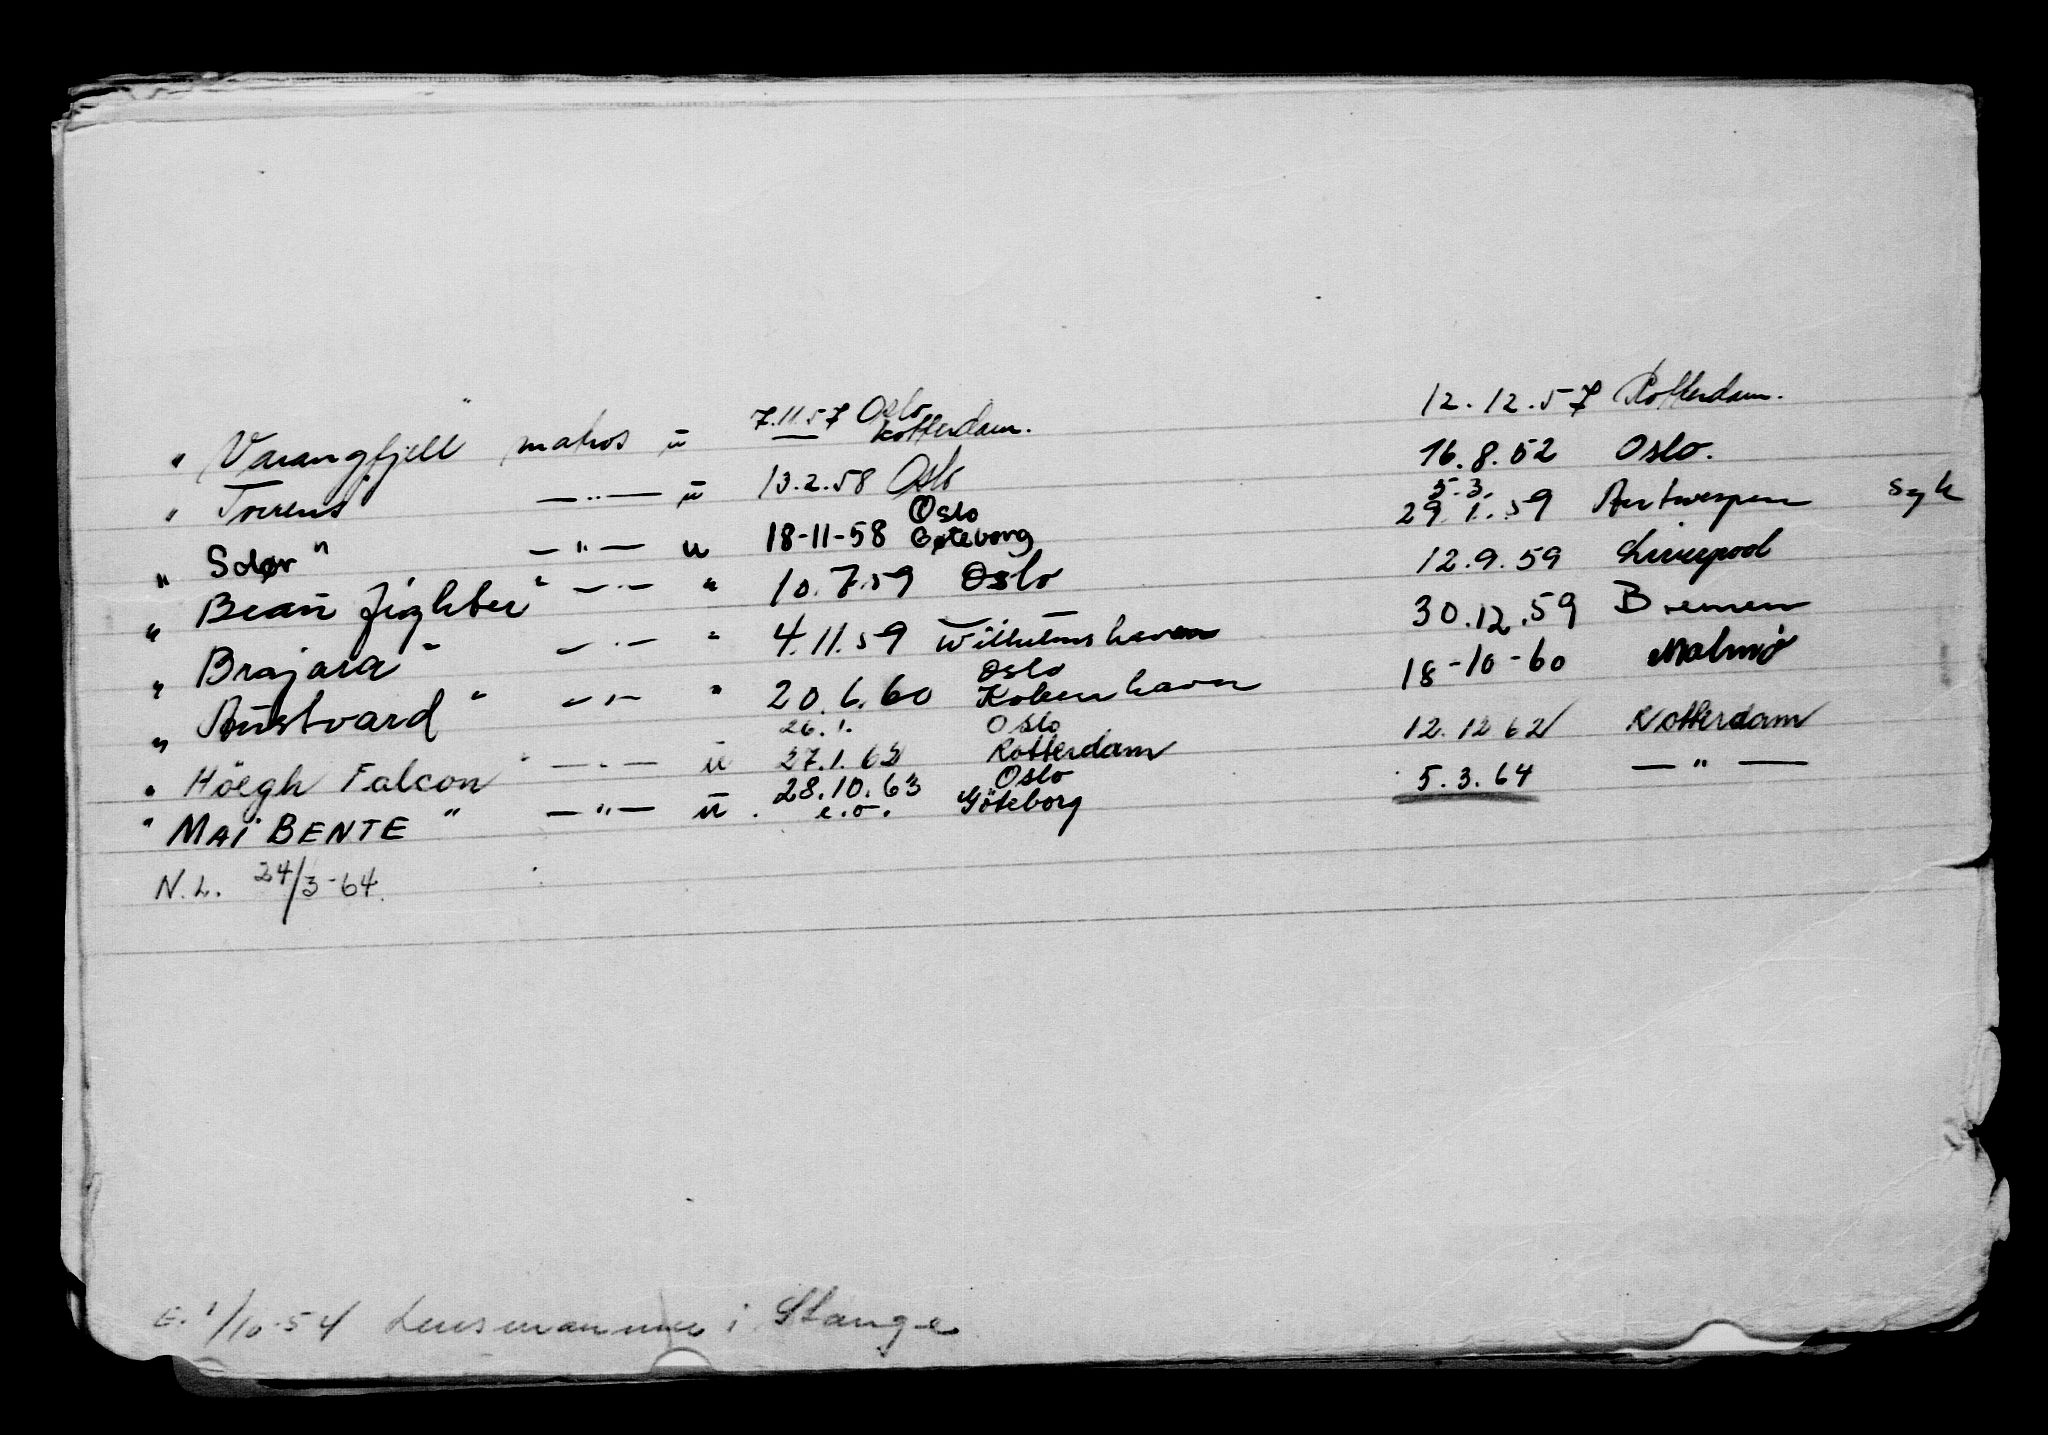 " Varangfjell " matros u 7.11.57 Oslo Rotterdam. 12.12.57 Rotterdam.
" Torrens — " — u 13.2.58 Oslo 16.8.52 Oslo.
" Sdør " — " — u 18-11-58 Oslo Gøteborg 5.3. 29.1.59 Antwerpen Syk
" Bean fighter " — " — " 10.7.59 Oslo 12.9.59 Liverpool
" Brajara " — " — " 4.11.59 Wilhelmshaven 30.12.59 Bremen
" Austvard " — " — " 20.6.60 Oslo Kobenhavn 18-10-60 Malmø
" Höegh Falcon " — " — u 26.1. 27.1.62 Oslo Rotterdam 12.12 62 Rotterdam
" MAI BENTE " — " — u. 28.10.63 e.o. Oslo Göteborg 5.3.64 — " —
N.L. 24/3-64.
E. 1/10-54 Lensmannen i Stange